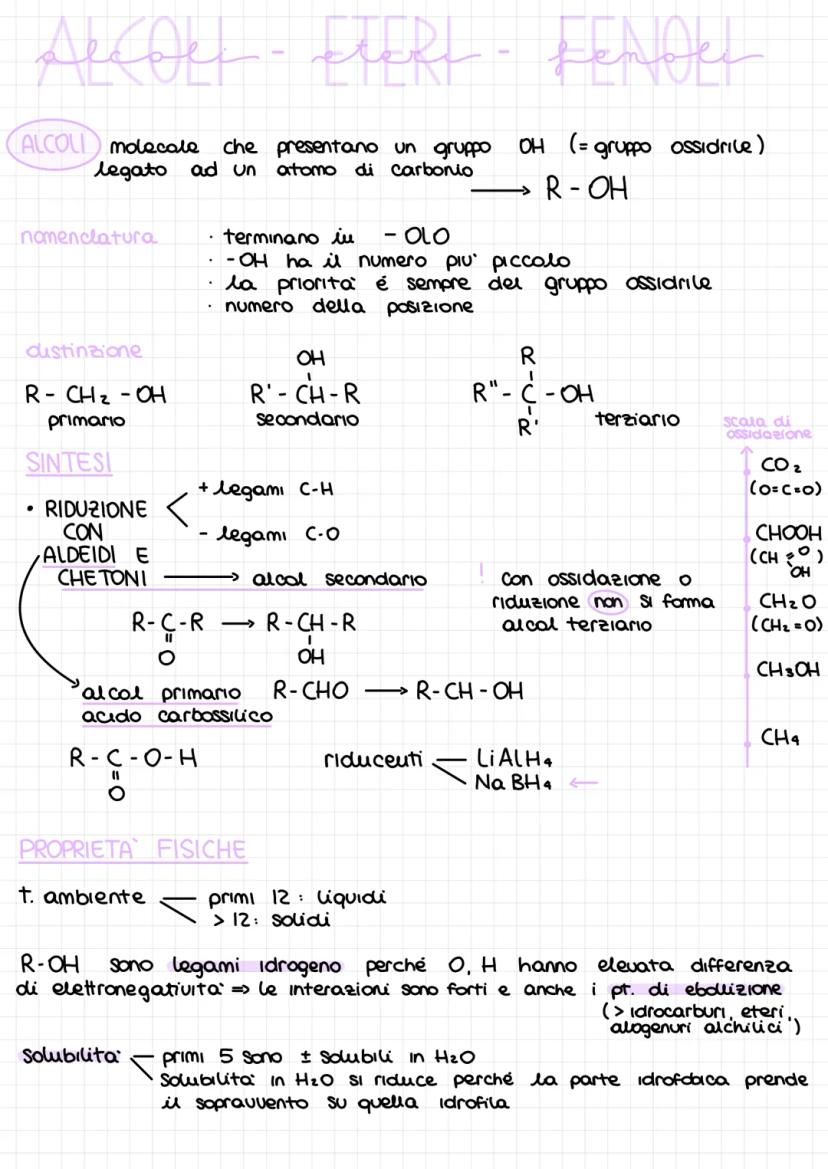 ALCOLI - ETERI - FENOLI
alcoli - eteri - fenoli
ALCOLI molecole che presentano un gruppo OH (= gruppo ossidrile)
legato ad un atomo di carbonio
⟶ R - OH
nomenclatura · terminano in - OLO
· -OH ha il numero piu' piccolo
· la priorita' é sempre del gruppo ossidrile
· numero della posizione
distinzione
OH R
R - CH₂ - OH R' - CH - R R" - C - OH
primario secondario R' terziario
scala di
ossidazione
SINTESI
CO₂
(O=C=O)
+ legami C-H
• RIDUZIONE
CON
- legami C-O
CHOOH
(CH =O )
OH
ALDEIDI E
CHETONI ⟶ alcol secondario
! con ossidazione o
riduzione non si forma
alcol terziario
CH₂O
(CH₂=O)
R-C-R ⟶ R-CH-R
O OH
CH₃OH
alcol primario R-CHO ⟶ R-CH-OH
acido carbossilico
CH₄
R - C - O - H
O
riducenti LiAlH₄
NaBH₄ ←
PROPRIETA' FISICHE
t. ambiente primi 12 : liquidi
> 12: solidi
R-OH sono legami idrogeno perché O, H hanno elevata differenza
di elettronegativita' ⇒ le interazioni sono forti e anche i pt. di ebollizione
(> idrocarburi, eteri,
alogenuri alchilici )
solubilita' primi 5 sono ± solubili in H₂O
solubilita' in H₂O si riduce perché la parte idrofobica prende
il sopravvento su quella idrofila